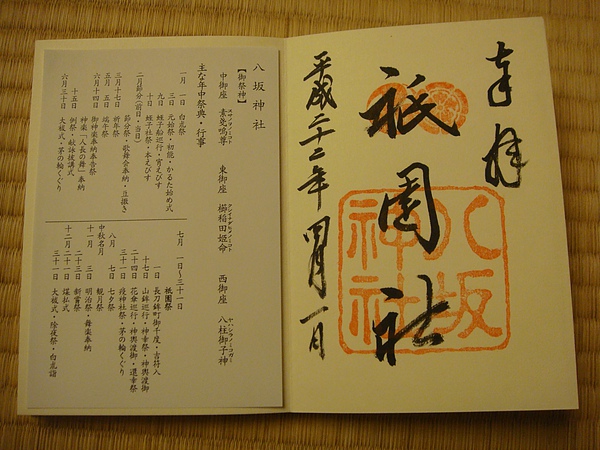 奉拝
祇園社
八坂神社
平成二十二年四月一日
八坂神社
【御祭神】
中御座 素戔嗚尊 東御座 櫛稲田姫命 西御座 八柱御子神
主な年中祭典・行事
一月 一日 白朮祭
三日 元始祭・初能・かるた始め式
九日 蛭子船巡行・宵えびす
十日 蛭子社祭・本えびす
二月節分(前日・当日)
節分祭・歌舞会奉納・豆撒き
三月十七日 祈年祭
五月 五日 端午祭
六月十四日 御神楽奉納奉告祭
神楽「人長の舞」奉納
十五日 例祭・献詠披講式
六月三十日 大祓式・茅の輪くぐり
七月 一日~三十一日
祇園祭
一日 長刀鉾町御千度・吉符入
十七日 山鉾巡行・神幸祭・神輿渡御
二十四日 花傘巡行・神輿渡御・還幸祭
三十一日 疫神社祭・茅の輪くぐり
八月 七日 七夕祭
中秋名月 観月祭
十一月 三日 明治祭・舞楽奉納
二十三日 新嘗祭
十二月二十一日 煤払式
三十一日 大祓式・除夜祭・白朮詣